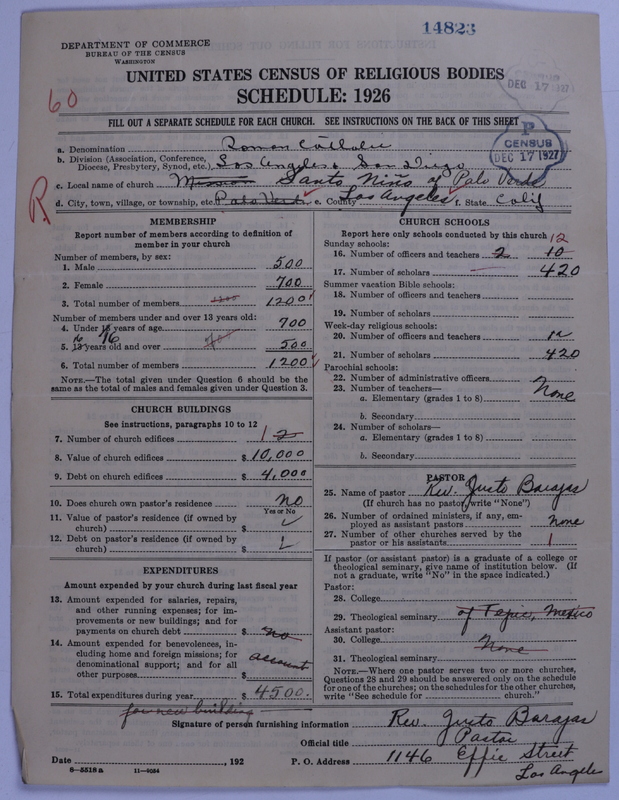 14823
DEPARTMENT OF COMMERCE
BUREAU OF THE CENSUS
WASHINGTON
UNITED STATES CENSUS OF RELIGIOUS BODIES
SCHEDULE: 1926
DEC 17 1927
60
FILL OUT A SEPARATE SCHEDULE FOR EACH CHURCH. SEE INSTRUCTIONS ON THE BACK OF THIS SHEET
P
CENSUS
DEC 17 1927
a. Denomination Roman Catholic
b. Division (Association, Conference, Diocese, Presbytery, Synod, etc.) Los Angeles & San Diego
c. Local name of church Mission Santo Niño of Palo Verde
R
d. City, town, village, or township, etc. Palo Verde e. County Los Angeles f. State Calif
MEMBERSHIP
Report number of members according to definition of
member in your church
Number of members, by sex:
1. Male 500
2. Female 700
3. Total number of members 1200 1200
Number of members under and over 13 years old:
4. Under 13 16 years of age 700
5. 13 16 years old and over 500
6. Total number of members 1200
NOTE.—The total given under Question 6 should be the
same as the total of males and females given under Question 3.
CHURCH BUILDINGS
See instructions, paragraphs 10 to 12
7. Number of church edifices 1 2
8. Value of church edifices $ 10,000
9. Debt on church edifices $ 4,000
10. Does church own pastor's residence No
Yes or No
11. Value of pastor's residence (if owned by
church) $
12. Debt on pastor's residence (if owned by
church) $
EXPENDITURES
Amount expended by your church during last fiscal year
13. Amount expended for salaries, repairs,
and other running expenses; for im-
provements or new buildings; and for
payments on church debt $ no
14. Amount expended for benevolences, in-
cluding home and foreign missions; for
denominational support; and for all
other purposes $ account
15. Total expenditures during year $ 4500.
for new building
CHURCH SCHOOLS
Report here only schools conducted by this church
Sunday schools: 12
16. Number of officers and teachers 2 10
17. Number of scholars 420
Summer vacation Bible schools:
18. Number of officers and teachers
19. Number of scholars
Week-day religious schools:
20. Number of officers and teachers 12
21. Number of scholars 420
Parochial schools:
22. Number of administrative officers
23. Number of teachers— None
a. Elementary (grades 1 to 8)
b. Secondary
24. Number of scholars—
a. Elementary (grades 1 to 8)
b. Secondary
PASTOR
25. Name of pastor Rev. Justo Barajas
(If church has no pastor, write "None")
26. Number of ordained ministers, if any, em-
ployed as assistant pastors none
27. Number of other churches served by the
pastor or his assistants 1
If pastor (or assistant pastor) is a graduate of a college or
theological seminary, give name of institution below. (If
not a graduate, write "No" in the space indicated.)
Pastor:
28. College
29. Theological seminary of Tepic, Mexico
Assistant pastor:
30. College None
31. Theological seminary
NOTE.—Where one pastor serves two or more churches,
Questions 28 and 29 should be answered only on the schedule
for one of the churches; on the schedules for the other churches,
write "See schedule for church"
Signature of person furnishing information Rev. Justo Barajas
Official title Pastor
Date , 192 P. O. Address 1146 Effie Street
Los Angeles
8—5518a 11—9054